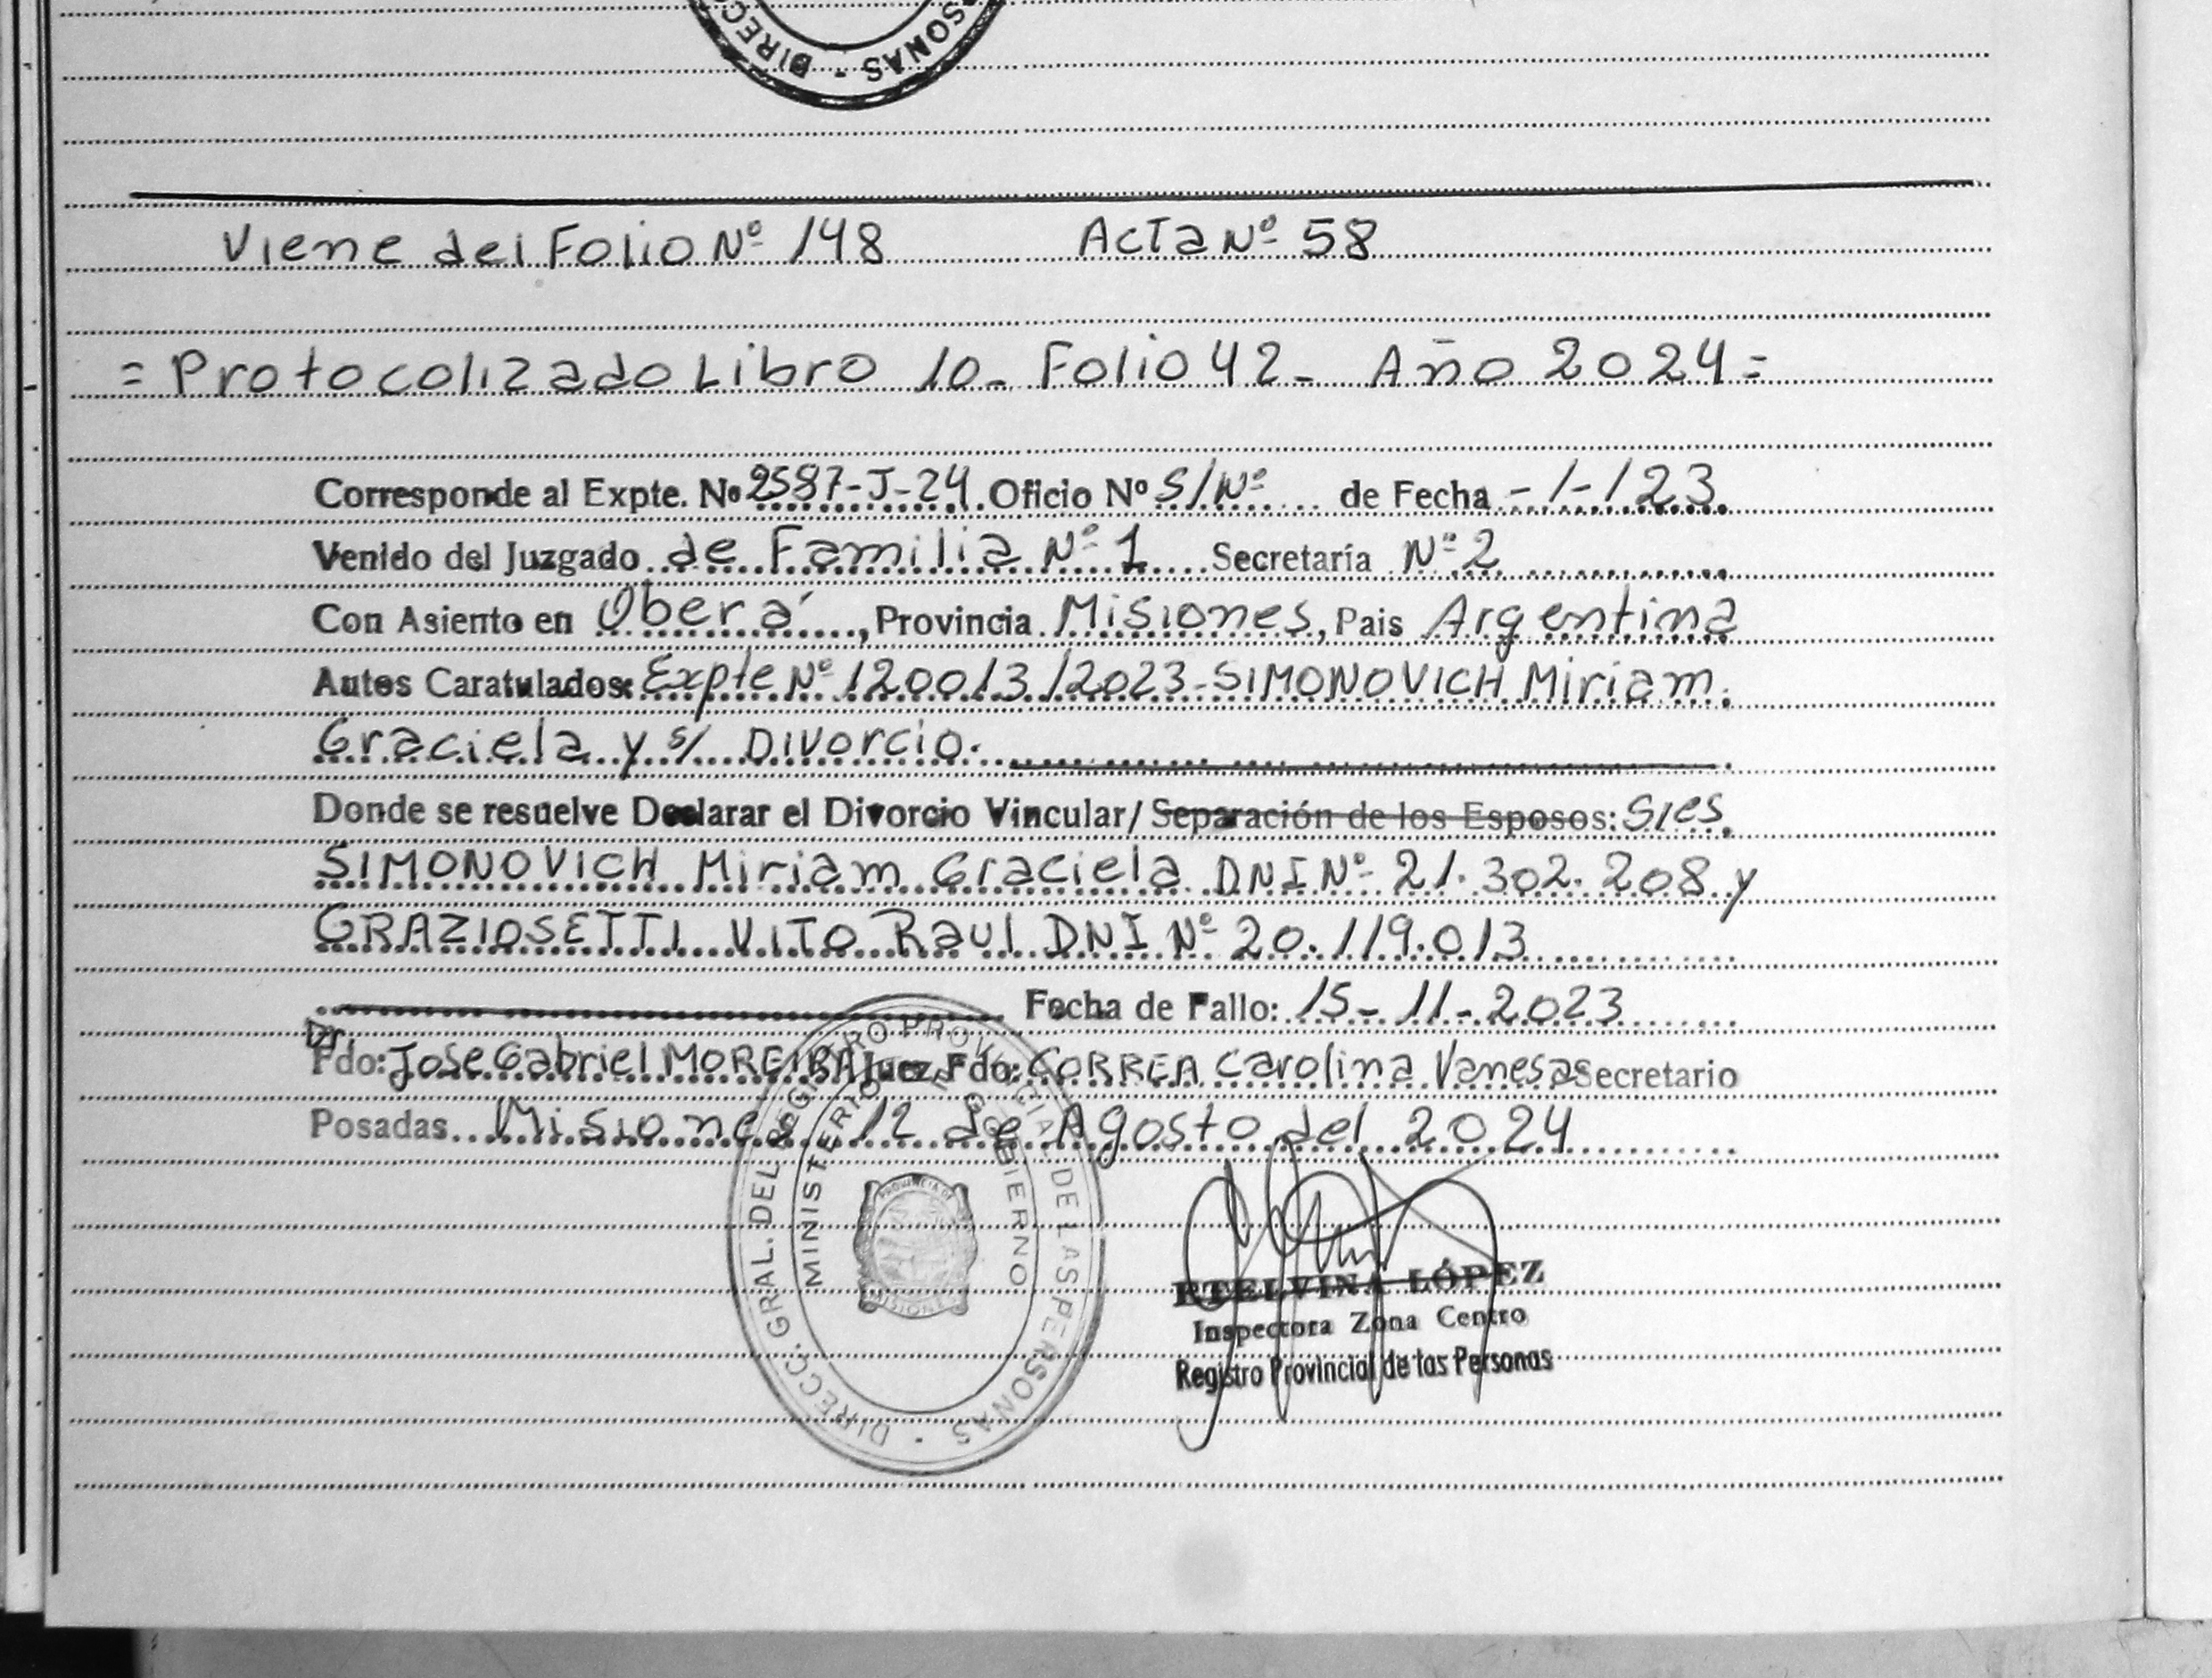 DIRECC SONAS -
Viene del Folio Nº 148 Acta Nº 58
= Protocolizado Libro 10_ Folio 42_ Año 2024=
Corresponde al Expte. Nº 2587-J-24. Oficio Nº S/Nº de Fecha -/-/23.
Venido del Juzgado de Familia Nº 1 Secretaría Nº 2
Con Asiento en Oberá, Provincia Misiones, Pais Argentina
Autos Caratulados: Expte Nº 120013/2023-SIMONOVICH Miriam.
Graciela y s/ Divorcio.
Donde se resuelve Declarar el Divorcio Vincular/ Separación de los Esposos: S/es.
SIMONOVICH Miriam Graciela DNI Nº 21.302.208 y
GRAZIOSETTI VITO Raul DNI Nº 20.119.013
Fecha de Fallo: 15-11-2023
Dr.
Fdo: Jose Gabriel MOREIRA Juez. Fdo: CORREA Carolina Vanesa Secretario
Posadas Misiones 12 de Agosto del 2024
DIRECC. GRAL. DEL REGISTRO PROVINCIAL DE LAS PERSONAS -
MINISTERIO DE GOBIERNO
PROVINCIA DE
MISIONES
ETELVINA LÓPEZ
Inspectora Zona Centro
Registro Provincial de las Personas